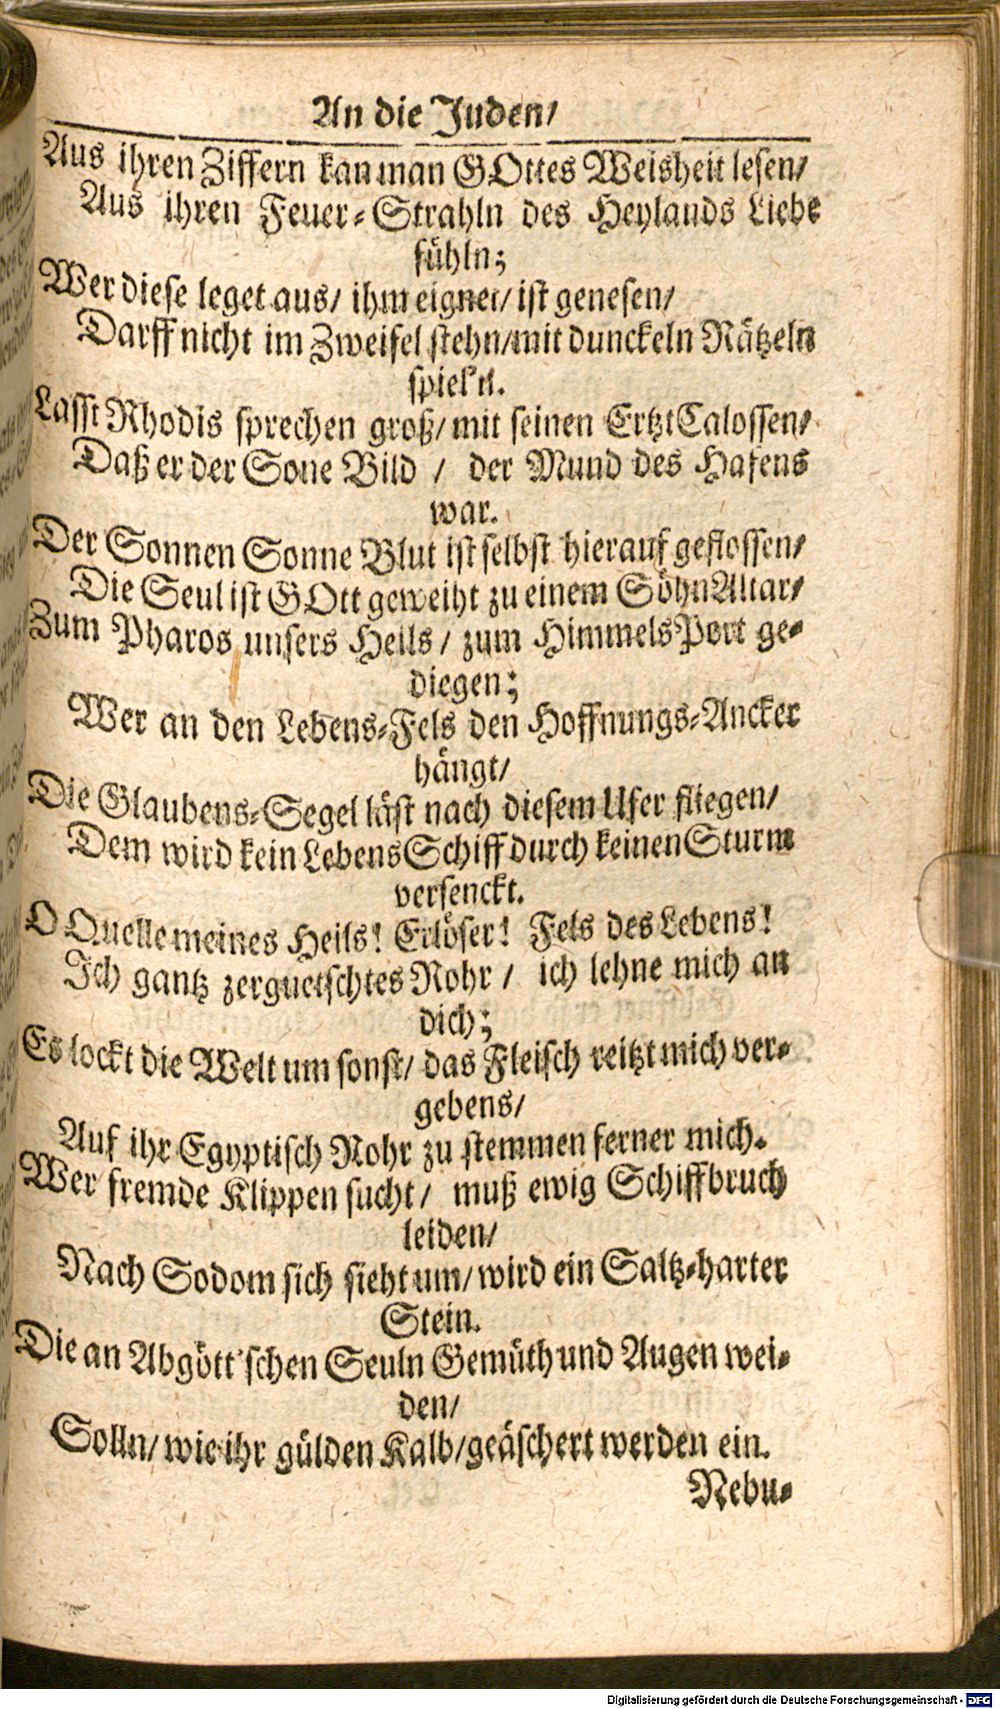 An die Juden/
Aus ihren Ziffern kan man GOttes Weisheit lesen/
Aus ihren Feuer-Strahln des Heylands Liebe
fühln;
Wer diese leget aus/ ihm eignet/ ist genesen/
Darff nicht im Zweifel stehn/mit dunckeln Rätzeln
spiel'n.
Lasst Rhodis sprechen groß/ mit seinen ErtztCalossen/
Daß er der Sone Bild / der Mund des Hafens
war.
Der Sonnen Sonne Blut ist selbst hierauf geflossen/
Die Seul ist GOtt geweiht zu einem SöhnAltar/
Zum Pharos unsers Heils/ zum HimmelsPort ge-
diegen;
Wer an den Lebens-Fels den Hoffnungs-Ancker
hängt/
Die Glaubens-Segel läst nach diesem Ufer fliegen/
Dem wird kein LebensSchiff durch keinen Sturm
versenckt.
O Quelle meines Heils! Erlöser! Fels des Lebens!
Ich gantz zerquetschtes Rohr / ich lehne mich an
dich;
Es lockt die Welt um sonst/ das Fleisch reitzt mich ver-
gebens/
Auf ihr Egyptisch Rohr zu stemmen ferner mich.
Wer fremde Klippen sucht/ muß ewig Schiffbruch
leiden/
Nach Sodom sich sieht um/ wird ein Saltz-harter
Stein.
Die an Abgött'schen Seuln Gemüth und Augen wei-
den/
Solln/ wie ihr gülden Kalb/geäschert werden ein.
Nebu-
Digitalisierung gefördert durch die Deutsche Forschungsgemeinschaft - DFG